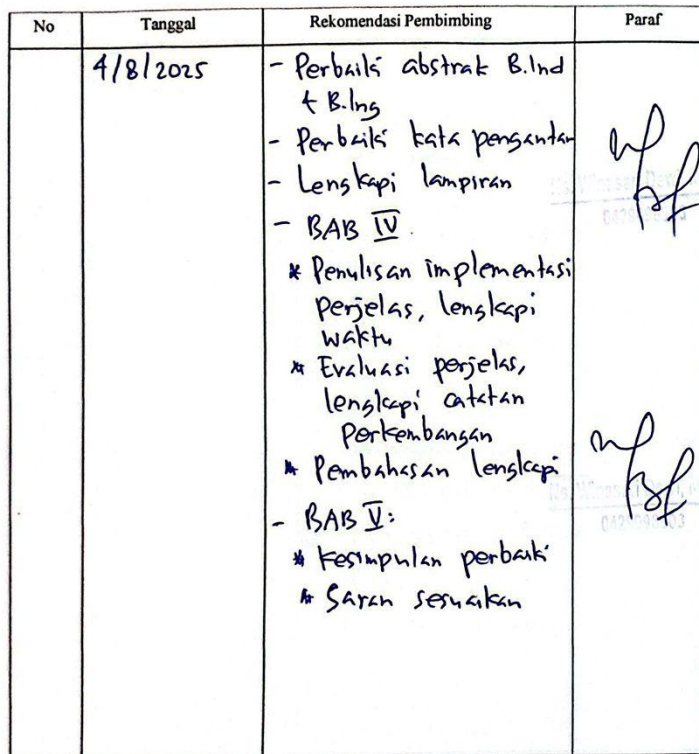 No Tanggal Rekomendasi Pembimbing Paraf
4/8/2025 - Perbaiki abstrak B.Ind
& B.Ing
- Perbaiki kata pengantar
- Lengkapi lampiran
- BAB IV
* Penulisan implementasi
perjelas, lengkapi
waktu
* Evaluasi perjelas,
lengkapi catatan
perkembangan
* Pembahasan lengkapi
- BAB V:
* Kesimpulan perbaiki
* Saran sesuaikan